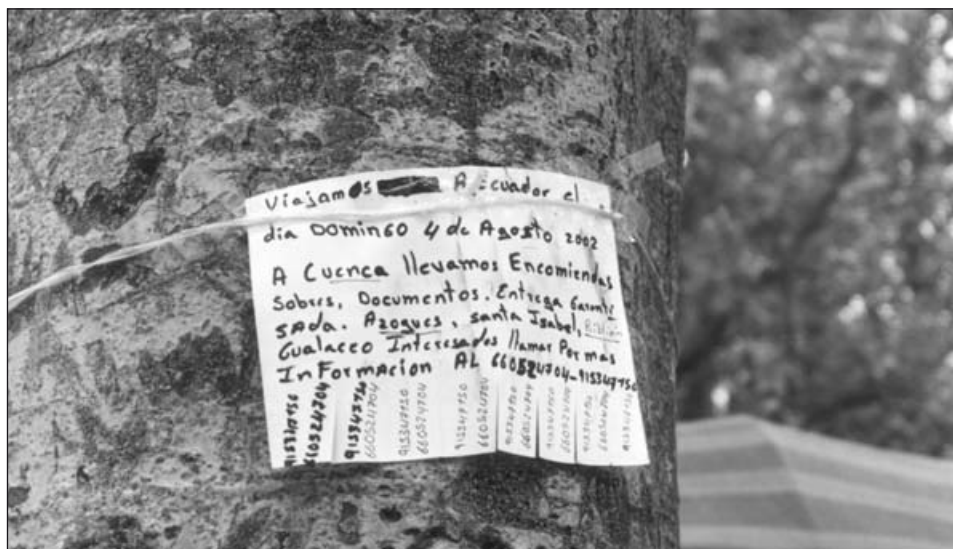 Viajamos A Ecuador el
dia Domingo 4 de Agosto 2002
A Cuenca llevamos Encomiendas
Sobres, Documentos. Entrega Garanti
sada. Azogues, santa Isabel, Biblian
Gualaceo Interesados llamar Por mas
InFormacion AL 660524704-915347150
915347150
660524704
915347150
660524704
915347150
660524704
915347150
660524704
915347150
660524704
915347150
660524704
915347150
660524704
915347150